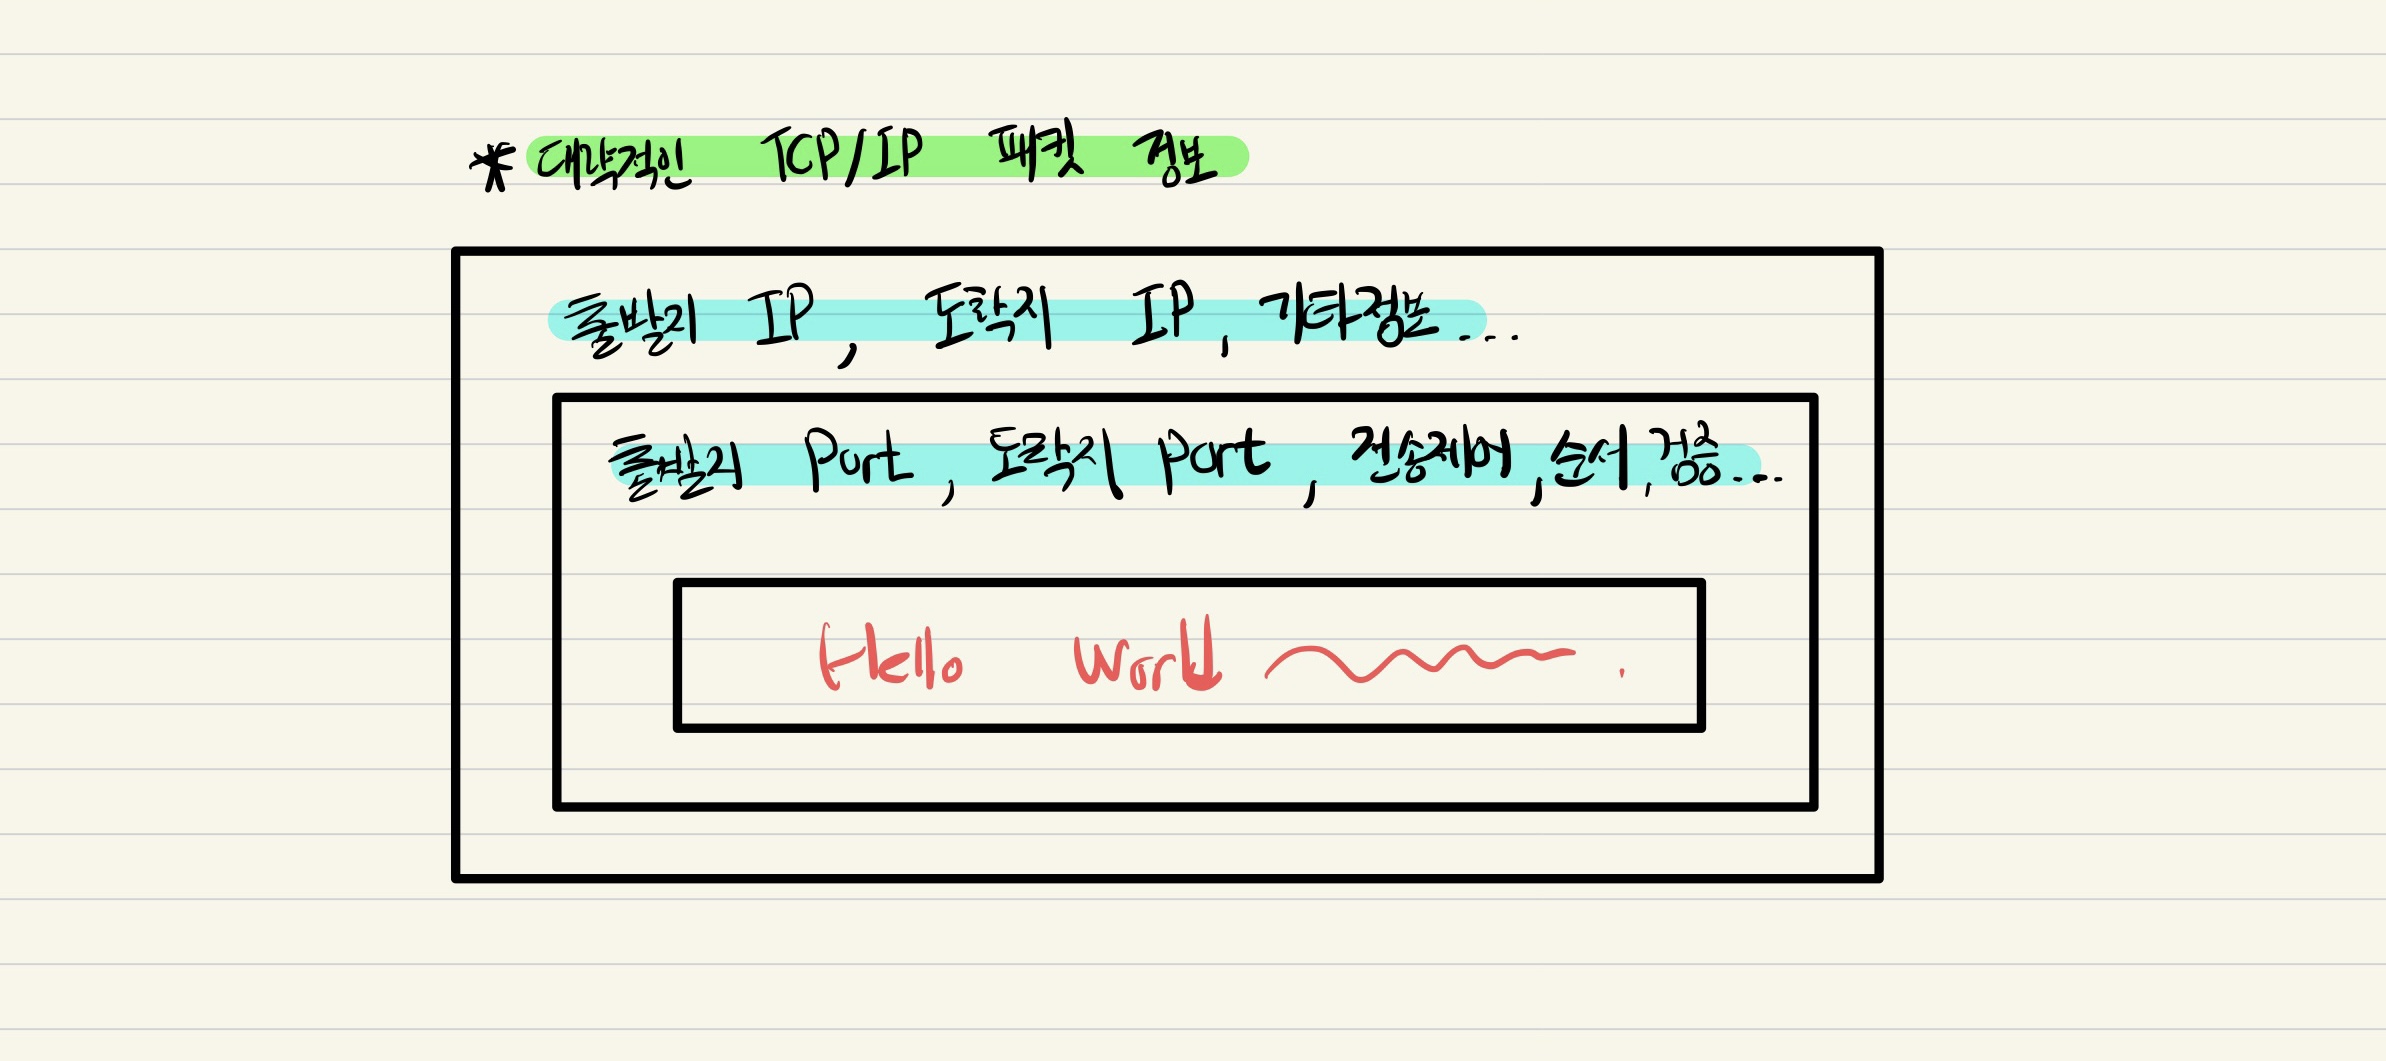 * 대략적인 TCP/IP 패킷 정보
출발지 IP, 도착지 IP, 기타정보...
출발지 Port, 도착지 Port, 전송제어, 순서, 검증...
Hello World